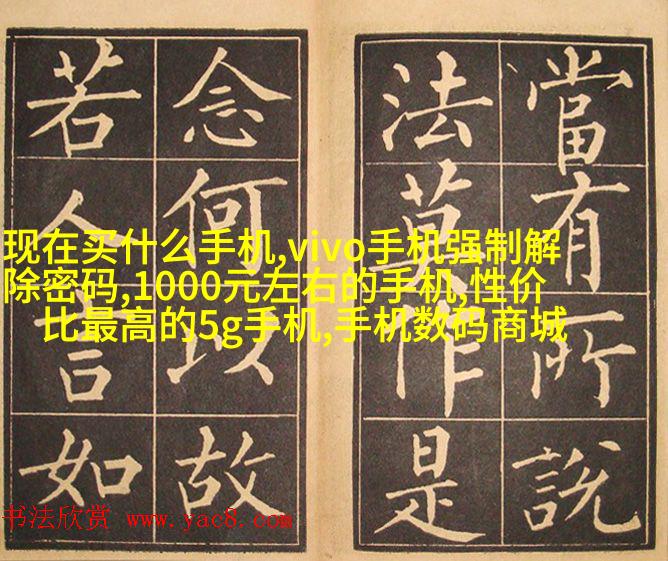 當有所說
法莫作是
念何以故
若人言如
现在买什么手机,vivo手机强制解
除密码,1000元左右的手机,性价
比最高的5g手机,手机数码商城
书法欣赏 www.yac8.com